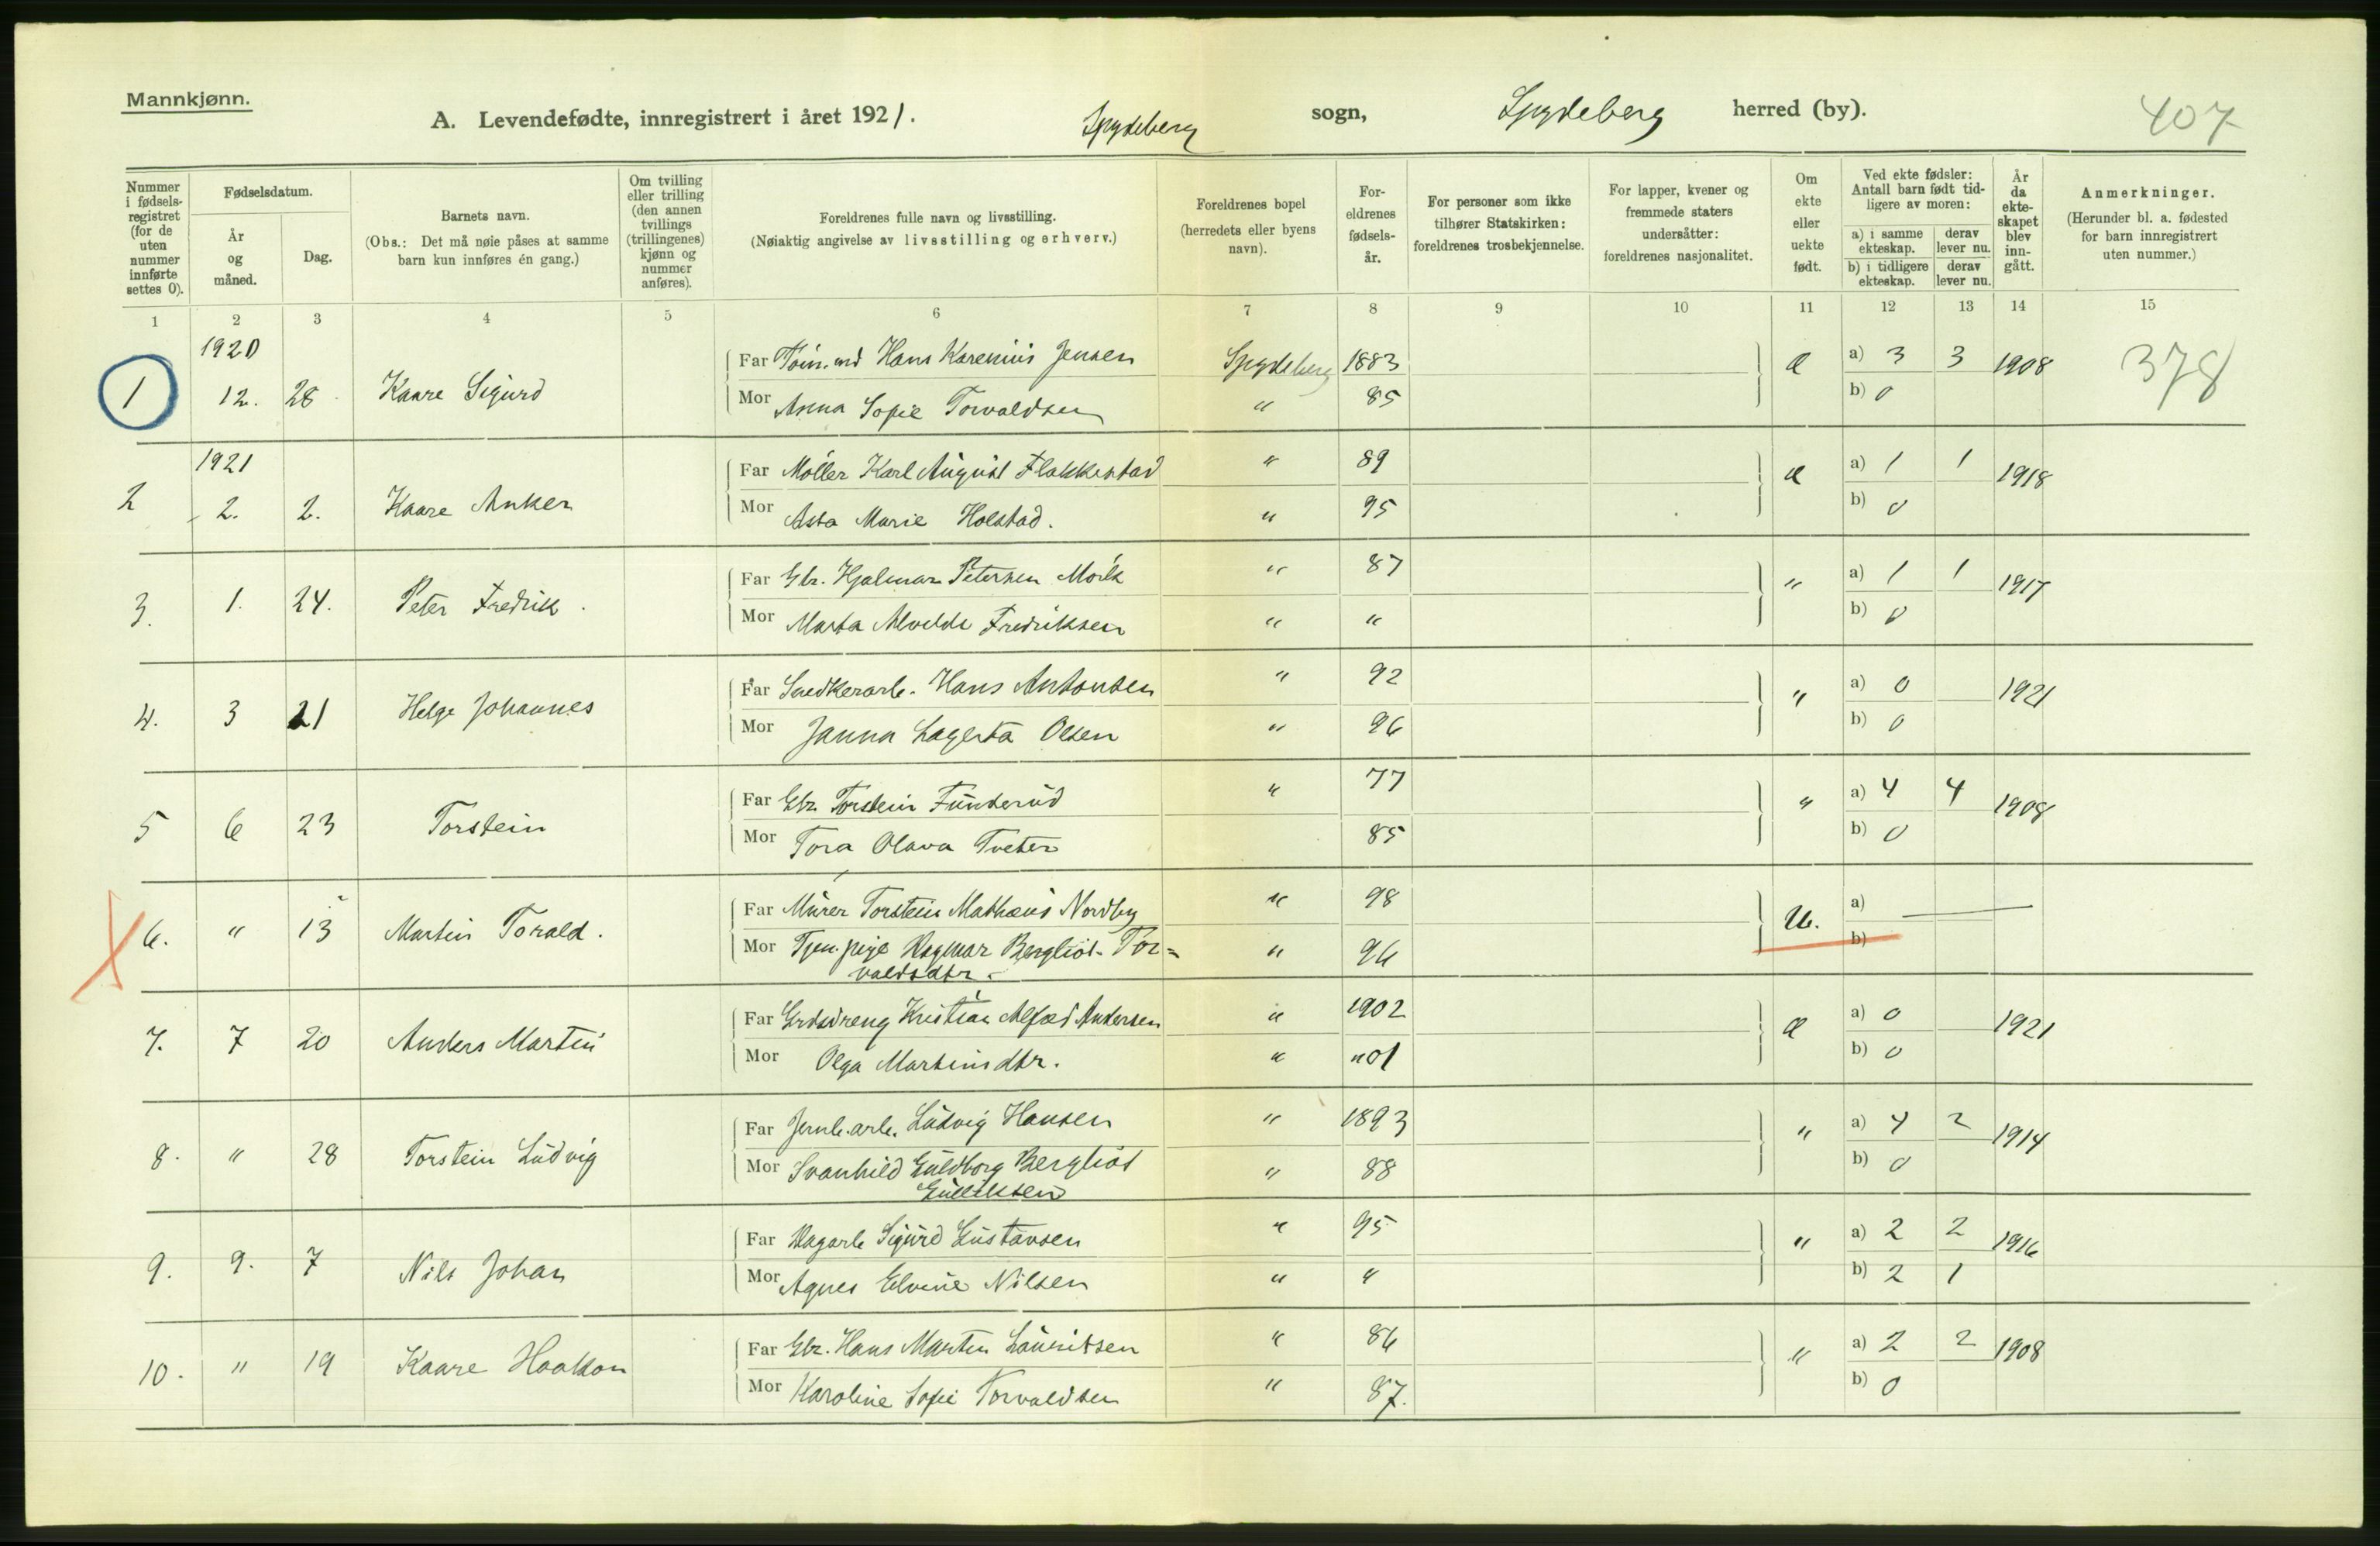 Mannkjønn.
A. Levendefødte, innregistrert i året 1921. Spydeberg sogn, Spydeberg herred (by). 407
Nummer i fødsels-registret (for de uten nummer innførte settes 0).
Fødselsdatum.
År og måned.
Dag.
Barnets navn.
(Obs.: Det må nøie påses at samme barn kun innføres én gang.)
Om tvilling eller trilling (den annen tvillings (trillingenes) kjønn og nummer anføres).
Foreldrenes fulle navn og livsstilling.
(Nøiaktig angivelse av livsstilling og erhverv.)
Foreldrenes bopel (herredets eller byens navn).
For-eldrenes fødsels-år.
For personer som ikke tilhører Statskirken: foreldrenes trosbekjennelse.
For lapper, kvener og fremmede staters undersåtter: foreldrenes nasjonalitet.
Om ekte eller uekte født.
Ved ekte fødsler: Antall barn født tid-ligere av moren:
a) i samme ekteskap. derav lever nu.
b) i tidligere ekteskap. derav lever nu.
År da ekte-skapet blev inn-gått.
Anmerkninger.
(Herunder bl. a. fødested for barn innregistrert uten nummer.)
1 2 3 4 5 6 7 8 9 10 11 12 13 14 15
1920
Far Hans Karenius Jensen Spydeberg 1883 a) 3 3 1908 378
1 12. 28 Kaare Sigurd Æ
Mor Anna Sofie Torvaldsen " 85 b) 0
1921
Far Møller Karl August Flakkestad " 89 a) 1 1 1918
2 2. 2. Kaare Anker Æ
Mor Asta Marie Holstad. " 95 b) 0
Far Gbr. Hjalmar Petersen Mørk " 87 a) 1 1 1917
3. 1. 24. Peter Fredrik "
Mor Marta Alvilde Fredriksen " " b) 0
Far Snedkerarb. Hans Antonsen " 92 a) 0 1921
4. 3 21 Helge Johannes "
Mor Janna Lagerta Olsen " 96 b) 0
Far Gbr. Torstein Funterud " 77 a) 4 4 1908
5 6 23 Torstein "
Mor Tora Olava Tveter 85 b) 0
Far Murer Torstein Mathæus Nordby " 98 a)
6. " 13 Martin Torald. U.
Mor Tjen. pige Dagmar Bergliot Tor= " 96 b)
valdsdtr.
Far Grdsdreng Kristian Alfred Andersen " 1902 a) 0 1921
7. 7 20 Anders Martin Æ
Mor Olga Martinsdtr. " "01 b) 0
Far Jernb.arb. Ludvig Hansen " 1893 a) 4 2 1914
8. " 28 Torstein Ludvig "
Mor Svanhild Guldborg Bergliot " 88 b) 0
Gulliksen
Far Dagarb Sigurd Gustavsen " 95 a) 2 2 1916
9. 9. 7 Nils Johan "
Mor Agnes Elvine Nilsen " " b) 2 1
Far Gbr. Hans Martin Lauritsen " 86 a) 2 2 1908
10. " 19 Kaare Haakon "
Mor Karoline Sofie Torvaldsen " 87. b) 0